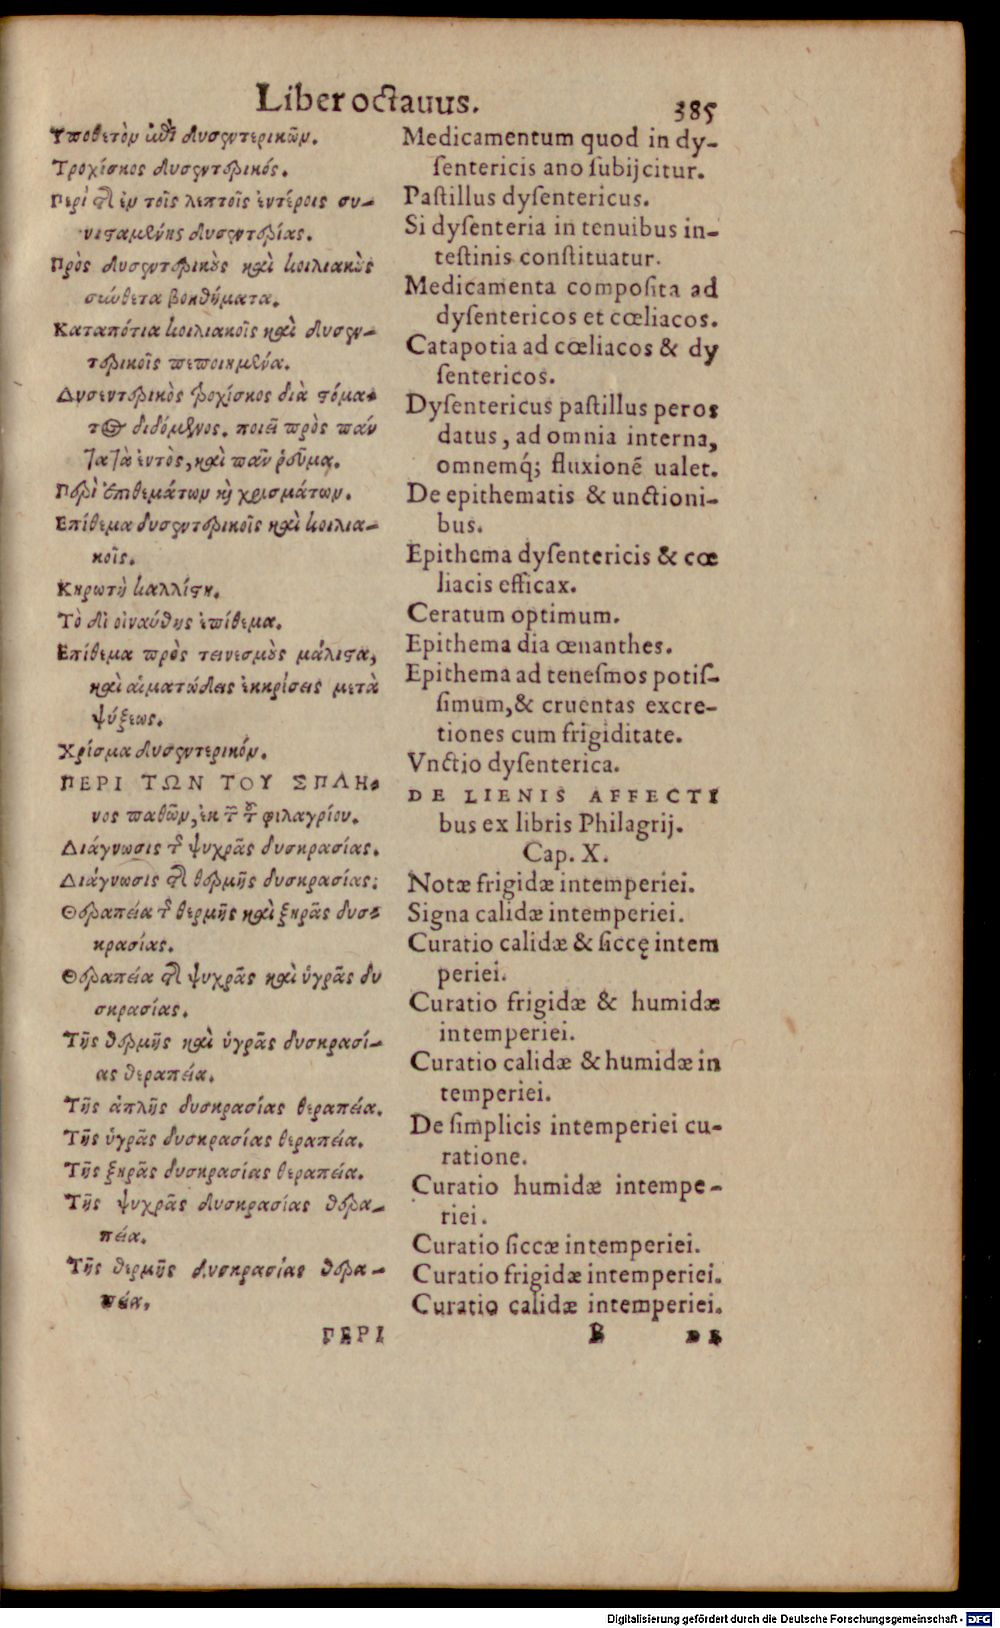 Liber octauus. 385
Υποθετὸν ἐπὶ δυσεντερικῶν.
Τροχίσκος δυσεντερικός.
Περὶ τῆς ἐν τοῖς λεπτοῖς ἐντέροις συ-
νισταμένης δυσεντερίας.
Πρὸς δυσεντερικοὺς καὶ κοιλιακοὺς
σύνθετα βοηθήματα.
Καταπότια κοιλιακοῖς καὶ δυσεν-
τερικοῖς πεποιημένα.
Δυσεντερικὸς τροχίσκος διὰ στόμα-
τος διδόμενος. ποιεῖ πρὸς πάν
τα τὰ ἐντὸς, καὶ πᾶν ῥεῦμα.
Περὶ ἐπιθεμάτων καὶ χρισμάτων.
Επίθεμα δυσεντερικοῖς καὶ κοιλια-
κοῖς.
Κηρωτὴ καλλίστη.
Τὸ δι οἰνάνθης ἐπίθεμα.
Επίθεμα πρὸς τεινεσμοὺς μάλιστα,
καὶ αἱματώδεις ἐκκρίσεις μετὰ
ψύξεως.
Χρίσμα δυσεντερικόν.
ΠΕΡΙ ΤΩΝ ΤΟΥ ΣΠΛΗ-
νος παθῶν, ἐκ τῶν τοῦ φιλαγρίου.
Διάγνωσις τῆς ψυχρᾶς δυσκρασίας.
Διάγνωσις τῆς θερμῆς δυσκρασίας:
Θεραπεία τῆς θερμῆς καὶ ξηρᾶς δυσ-
κρασίας.
Θεραπεία τῆς ψυχρᾶς καὶ ὑγρᾶς δυ
σκρασίας.
Τῆς θερμῆς καὶ ὑγρᾶς δυσκρασί-
ας θεραπεία.
Τῆς ἁπλῆς δυσκρασίας θεραπεία.
Τῆς ὑγρᾶς δυσκρασίας θεραπεία.
Τῆς ξηρᾶς δυσκρασίας θεραπεία.
Τῆς ψυχρᾶς δυσκρασίας θερα-
πεία.
Τῆς θερμῆς δυσκρασίας θερα-
πεία.
ΠΕΡΙ
Medicamentum quod in dy-
sentericis ano subijcitur.
Pastillus dysentericus.
Si dysenteria in tenuibus in-
testinis constituatur.
Medicamenta composita ad
dysentericos et cœliacos.
Catapotia ad cœliacos & dy
sentericos.
Dysentericus pastillus per os
datus, ad omnia interna,
omnemq́; fluxionē ualet.
De epithematis & unctioni-
bus.
Epithema dysentericis & cœ
liacis efficax.
Ceratum optimum.
Epithema dia œnanthes.
Epithema ad tenesmos potis-
simum, & cruentas excre-
tiones cum frigiditate.
Vnctio dysenterica.
DE LIENIS AFFECTI
bus ex libris Philagrij.
Cap. X.
Notæ frigidæ intemperiei.
Signa calidæ intemperiei.
Curatio calidæ & siccę intem
periei.
Curatio frigidæ & humidæ
intemperiei.
Curatio calidæ & humidæ in
temperiei.
De simplicis intemperiei cu-
ratione.
Curatio humidæ intempe-
riei.
Curatio siccæ intemperiei.
Curatio frigidæ intemperiei.
Curatio calidæ intemperiei.
B DE
Digitalisierung gefördert durch die Deutsche Forschungsgemeinschaft - DFG